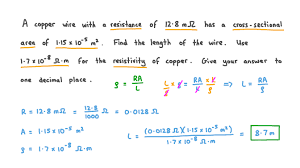 A copper wire with a resistance of 12.8 mΩ has a cross-sectional
area of 1.15×10⁻⁵ m². Find the length of the wire. Use
1.7×10⁻⁸ Ω·m for the resistivity of copper. Give your answer to
one decimal place. ρ = RA/L L/ρ × ρ = RA/L × L/ρ ⇒ L = RA/ρ
R = 12.8 mΩ = 12.8/1000 Ω = 0.0128 Ω
A = 1.15×10⁻⁵ m² L = (0.0128 Ω)(1.15×10⁻⁵ m²)/1.7×10⁻⁸ Ω·m = 8.7 m
ρ = 1.7×10⁻⁸ Ω·m